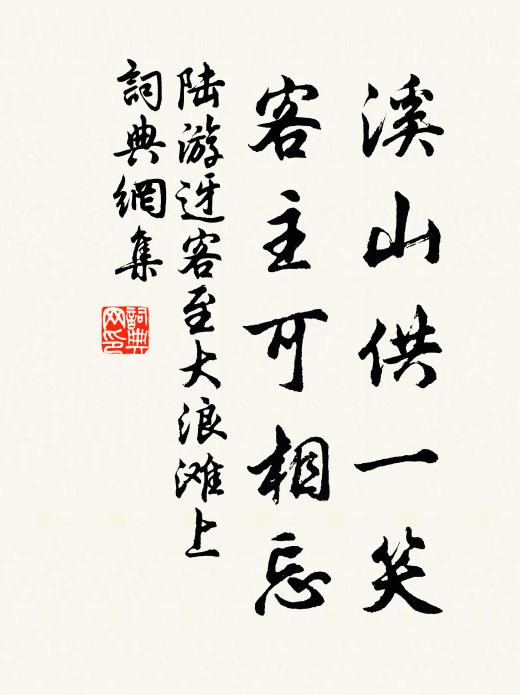 溪山供一笑
客主可相忘
陆游迓客至大浪滩上
詞典網集
詞典网印